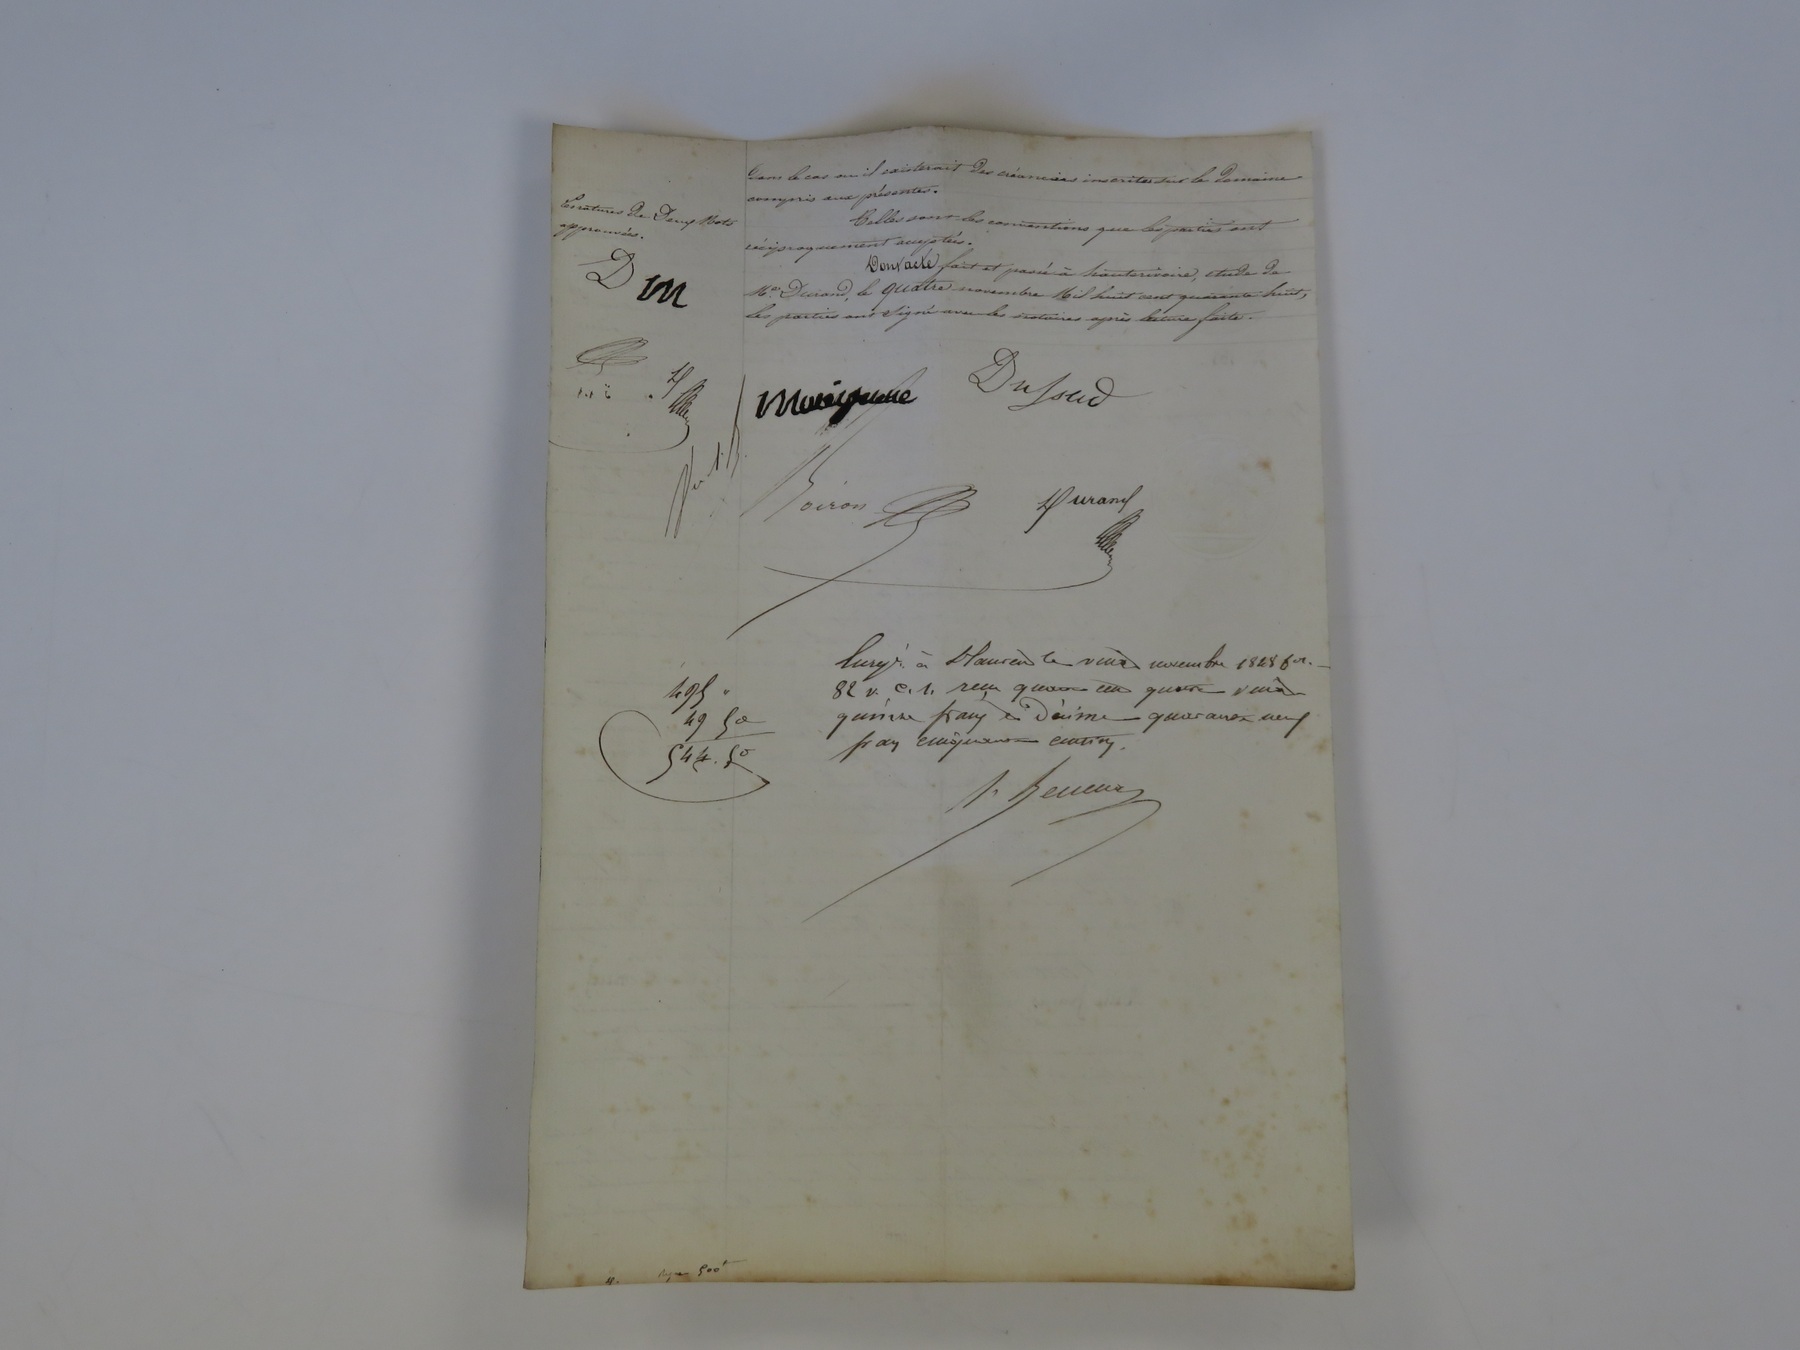 Dans le cas où il existerait des créanciers inscrits sur le domaine
compris aux présentes.
Telles sont les conventions que les parties ont
réciproquement acceptées.
Dont acte, fait et passé à hauterivoire, étude de
Me. Durand, le quatre novembre Mil huit cent quarante huit,
les parties ont signé avec les notaires après lecture faite.
Ratures de Deux Mots
approuvées.
D M
Dussud
Boiron
Durand
Enregé. à St Laurent le vingt novembre 1848 fol.
82 v. c. 1. reçu quatre cent quatre vingt
quinze francs et décime quarante neuf
francs cinquante centimes.
495 "
49 50
544. 50